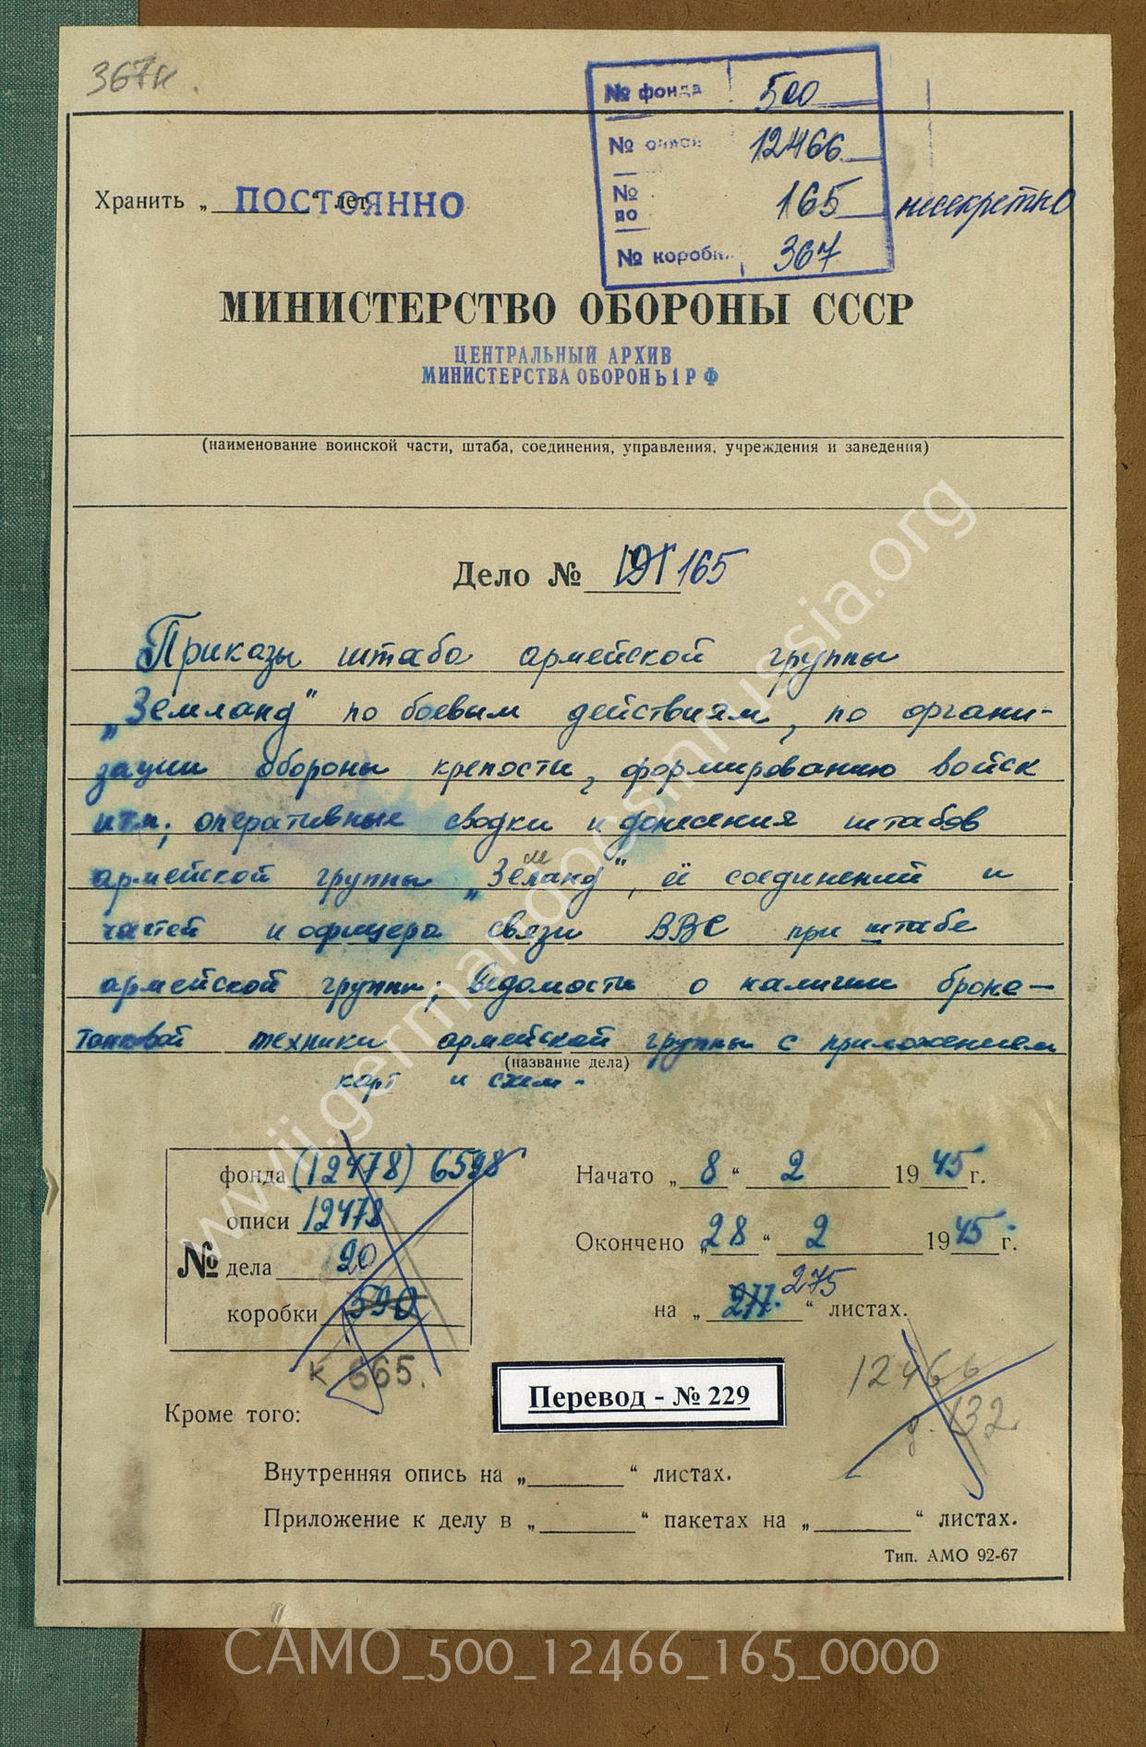 367к.
№ фонда 500
№ описи 12466
№ 165
по
№ коробки 367
несекретно
Хранить „ ПОСТОЯННО “ лет
МИНИСТЕРСТВО ОБОРОНЫ СССР
ЦЕНТРАЛЬНЫЙ АРХИВ
МИНИСТЕРСТВА ОБОРОНЫ РФ
(наименование воинской части, штаба, соединения, управления, учреждения и заведения)
Дело № 191 165
Приказы штаба армейской группы
„Земланд" по боевым действиям, по органи-
зации обороны крепости, формированию войск
итп; оперативные сводки и донесения штабов
армейской группы „Земланд", её соединений и
частей и офицера связи ВВС при штабе
армейской группы; Ведомости о наличии броне-
танковой техники армейской группы с приложением
(название дела)
карт и схем.
фонда (12478) 6598
описи 12478
№ дела 20
коробки 590
к 665.
Начато „ 8 “ 2 1945 г.
Окончено „ 28 “ 2 1945 г.
на „ 277. 275 “ листах.
12466
д. 132
Перевод - № 229
Кроме того:
Внутренняя опись на „ “ листах.
Приложение к делу в „ “ пакетах на „ “ листах.
Тип. АМО 92-67
www.germandocsinrussia.org
CAMO_500_12466_165_0000